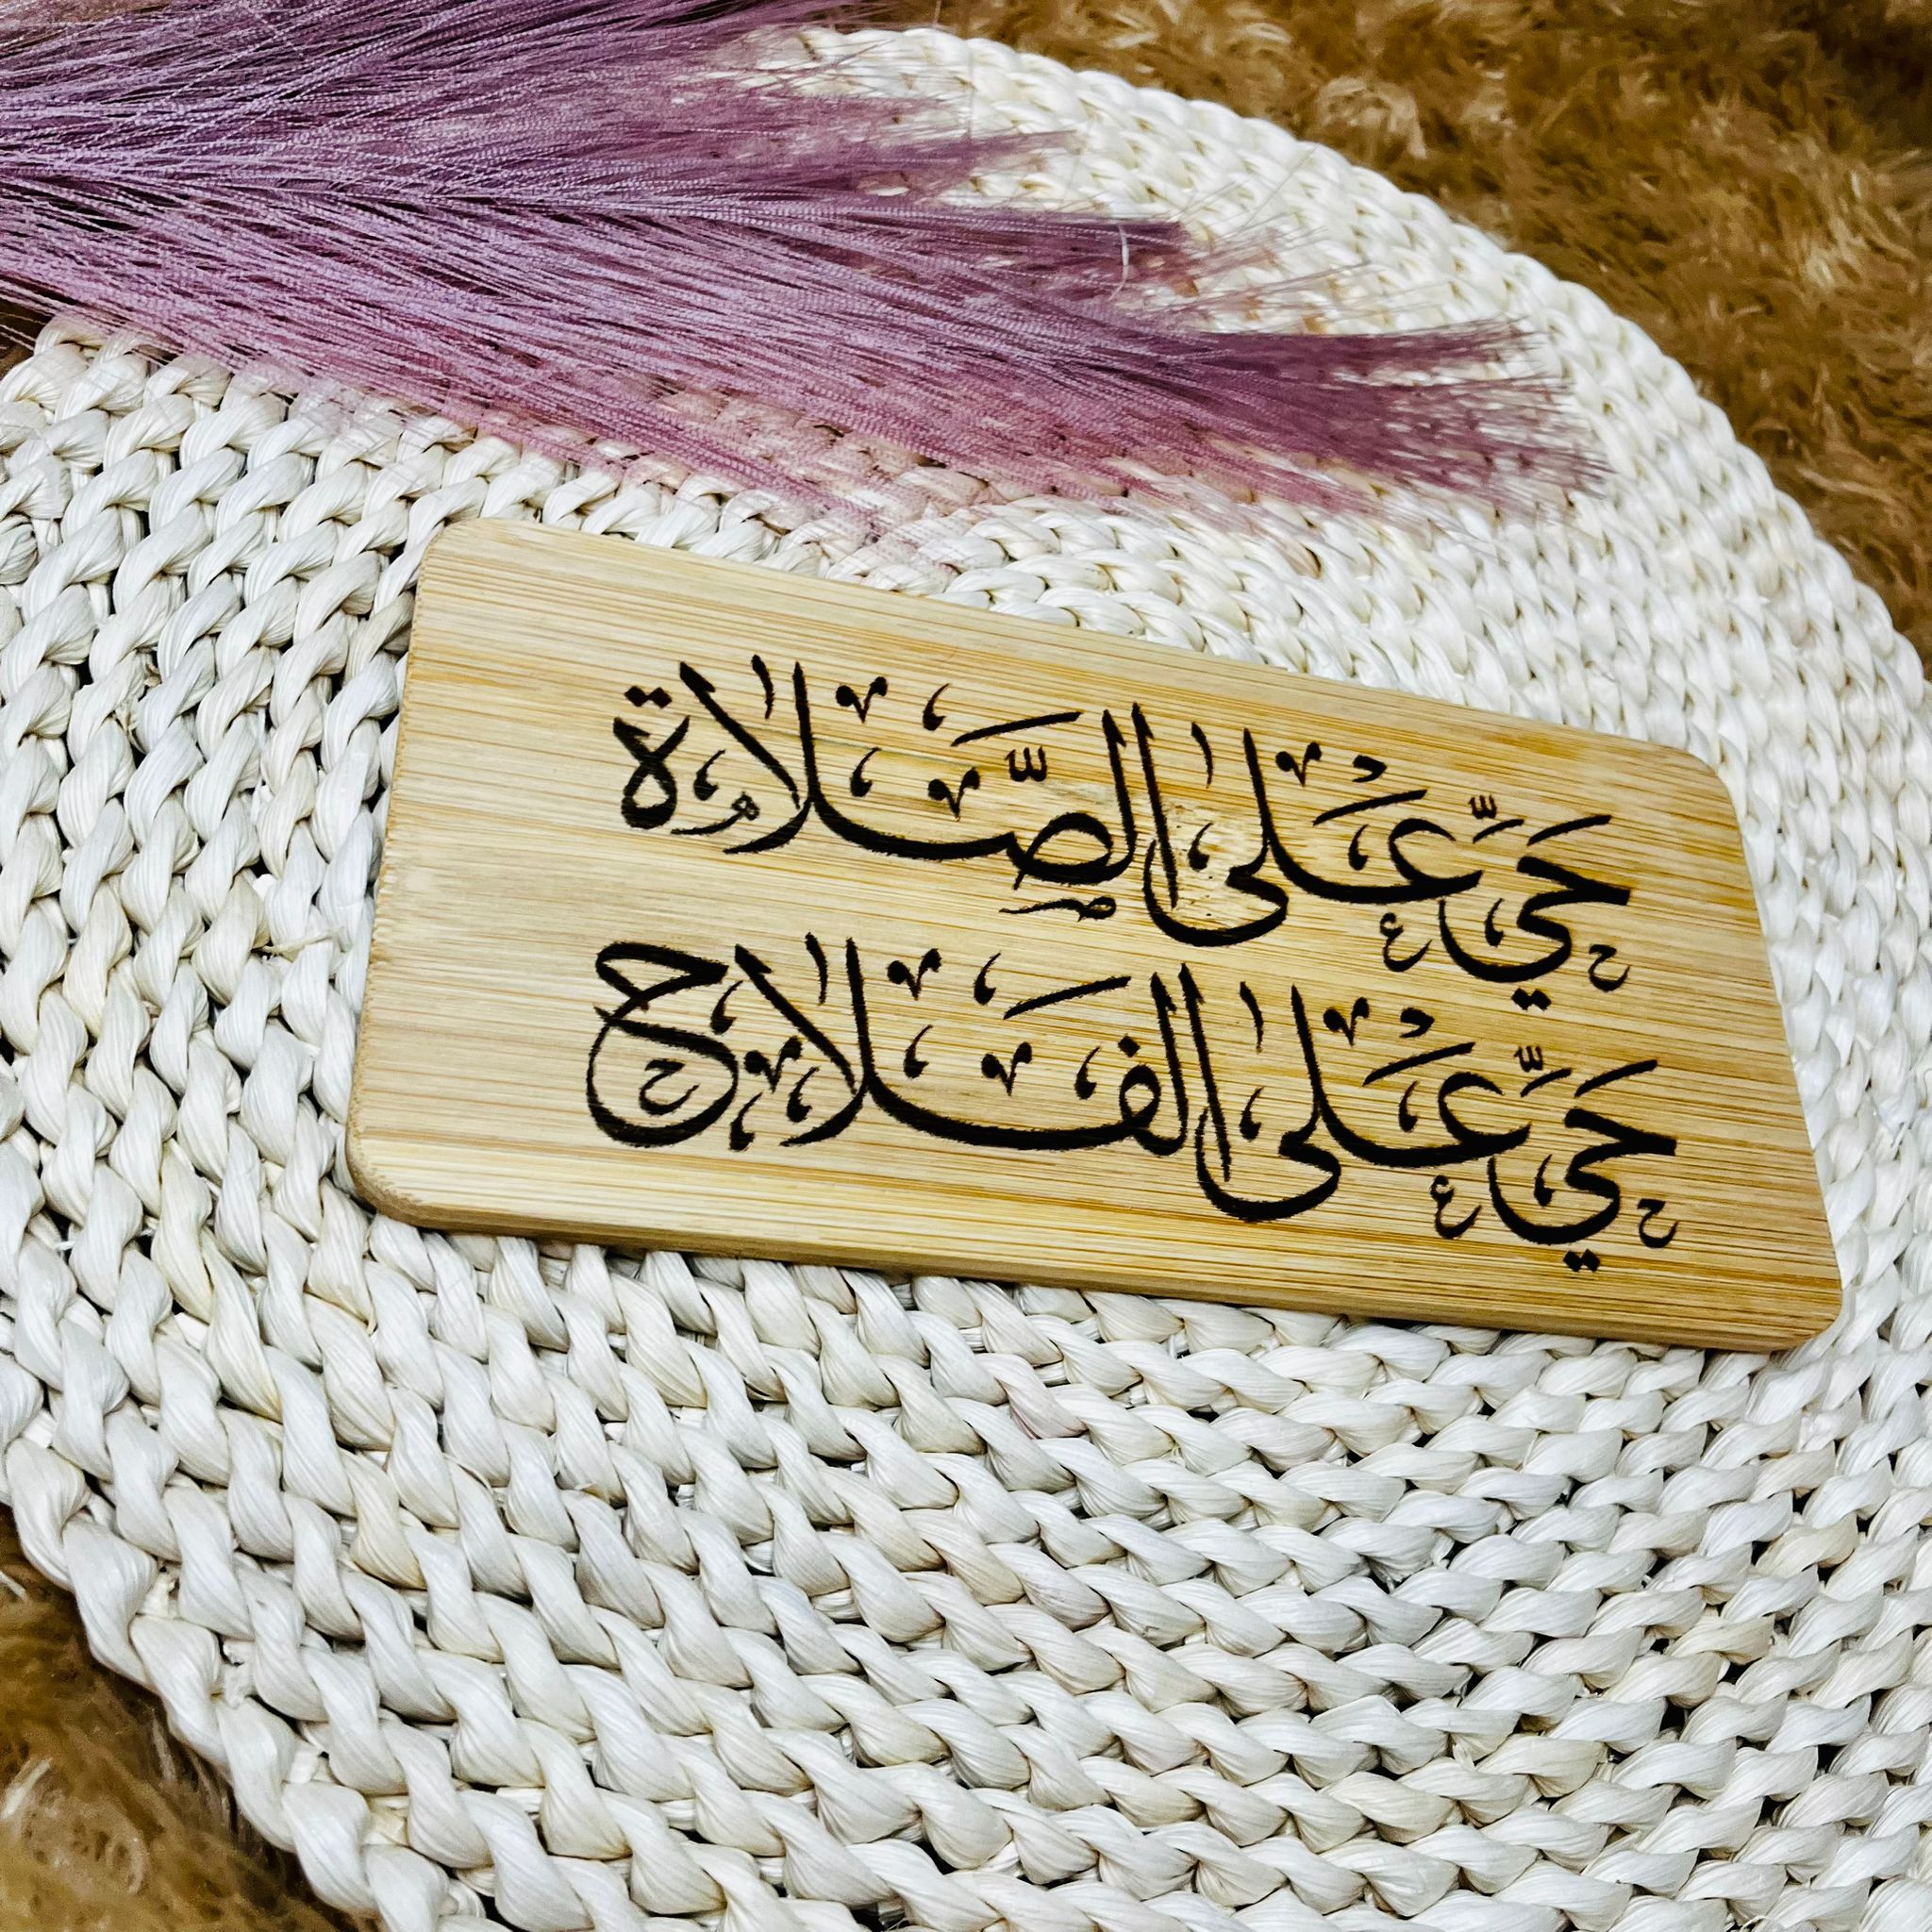 حَيَّ عَلَى الصَّلَاة
حَيَّ عَلَى الفَلَاح